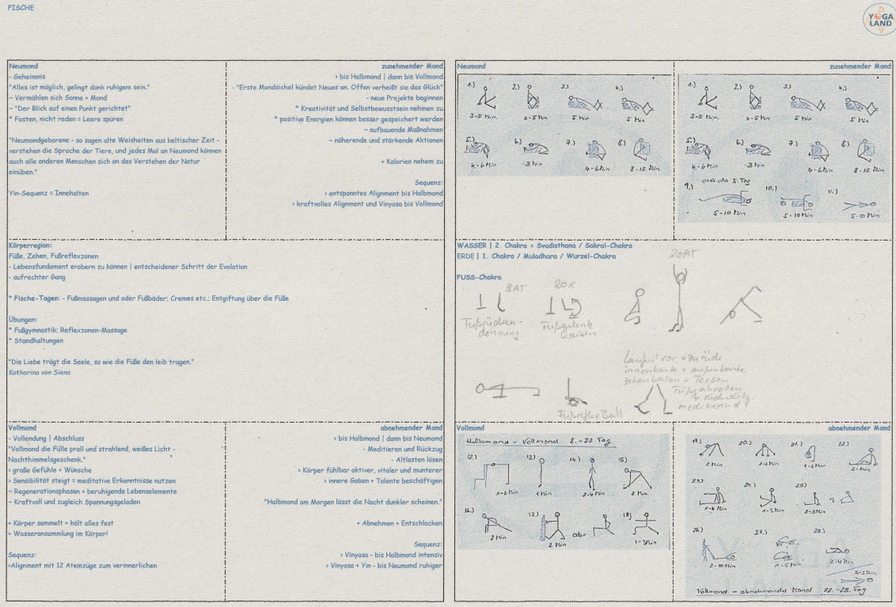 FISCHE
YOGA
LAND
Neumond
- Geheimnis
"Alles ist möglich, gelingt dank ruhigem sein."
~ Vermählen sich Sonne + Mond
~ "Der Blick auf einen Punkt gerichtet"
* Fasten, nicht reden = Leere spüren
"Neumondgeborene - so sagen alte Weisheiten aus keltischer Zeit -
verstehen die Sprache der Tiere, und jedes Mal an Neumond können
auch alle anderen Menschen sich an das Verstehen der Natur
einüben."
Yin-Sequenz = Innehalten
zunehmender Mond
> bis Halbmond | dann bis Vollmond
- "Erste Mondsichel kündet Neues an. Offen verheißt sie das Glück"
- neue Projekte beginnen
* Kreativität und Selbstbewusstsein nehmen zu
* positive Energien können besser gespeichert werden
~ aufbauende Maßnahmen
~ nährende und stärkende Aktionen
+ Kalorien nehmen zu
Sequenz:
> entspanntes Alignment bis Halbmond
> kraftvolles Alignment und Vinyasa bis Vollmond
Neumond
1.)
2.)
3.)
4.)
3-5 Min
3-5 Min
5 Min
5 Min
5.)
6.)
7.)
8.)
4-6 Min
3 Min
4-6 Min
8-12 Min
zunehmender Mond
1.)
2.)
3.)
4.)
3-5 Min
3-5 Min
5 Min
5 Min
5.)
6.)
7.)
8.)
4-6 Min
3 Min
4-6 Min
8-12 Min
9.)
5. Tag
10.)
11.)
5-10 Min
5-10 Min
5-10 Min
Körperregion:
Füße, Zehen, Fußreflexzonen
- Lebensfundament erobern zu können | entscheidener Schritt der Evolution
- aufrechter Gang
* Fische-Tagen: - Fußmassagen und oder Fußbäder; Cremes etc.; Entgiftung über die Füße
Übungen:
* Fußgymnastik: Reflexzonen-Massage
* Standhaltungen
"Die Liebe trägt die Seele, so wie die Füße den leib tragen."
Katharina von Siena
WASSER | 2. Chakra = Svadisthana / Sakral-Chakra
ERDE | 1. Chakra / Muladhara / Wurzel-Chakra
FUSS-Chakra
8AT
20x
20AT
Fußrücken-
dehnung
Fußgelenk
kreisen
Laufen vor + zurück
innenkante + außenkante
Zehenballen + Fersen
Fußreflex Ball
Vollmond
- Vollendung | Abschluss
"Vollmond die Fülle prall und strahlend, weißes Licht -
Nachthimmelsgeschenk."
> große Gefühle + Wünsche
> Sensibilität steigt = meditative Erkenntnisse nutzen
~ Regenerationsphasen + beruhigende Lebenselemente
~ Kraftvoll und zugleich Spannungsgeladen
+ Körper sammelt + hält alles fest
+ Wasseransammlung im Körper!
Sequenz:
>Alignment mit 12 Atemzüge zum verinnerlichen
abnehmender Mond
> bis Halbmond | dann bis Neumond
- Meditieren und Rückzug
- Altlasten lösen
> Körper fühlbar aktiver, vitaler und munterer
> innere Gaben + Talente beschäftigen
"Halbmond am Morgen lässt die Nacht dunkler scheinen."
+ Abnehmen + Entschlacken
Sequenz:
> Vinyasa - bis Halbmond intensiv
> Vinyasa + Yin - bis Neumond ruhiger
Vollmond
Halbmond - Vollmond 8.-22. Tag
12.)
13.)
14.)
15.)
1-2 Min
1 Min
2 Min
16.)
17.)
oder
18.)
2 Min
2 Min
1-3 Min
abnehmender Mond
19.)
20.)
21.)
22.)
2 Min
1-2 Min
1-2 Min
2 Min
23.)
24.)
25.)
26.)
27.)
28.)
2-10 Min
Vollmond - abnehmender Mond 22.-28. Tag